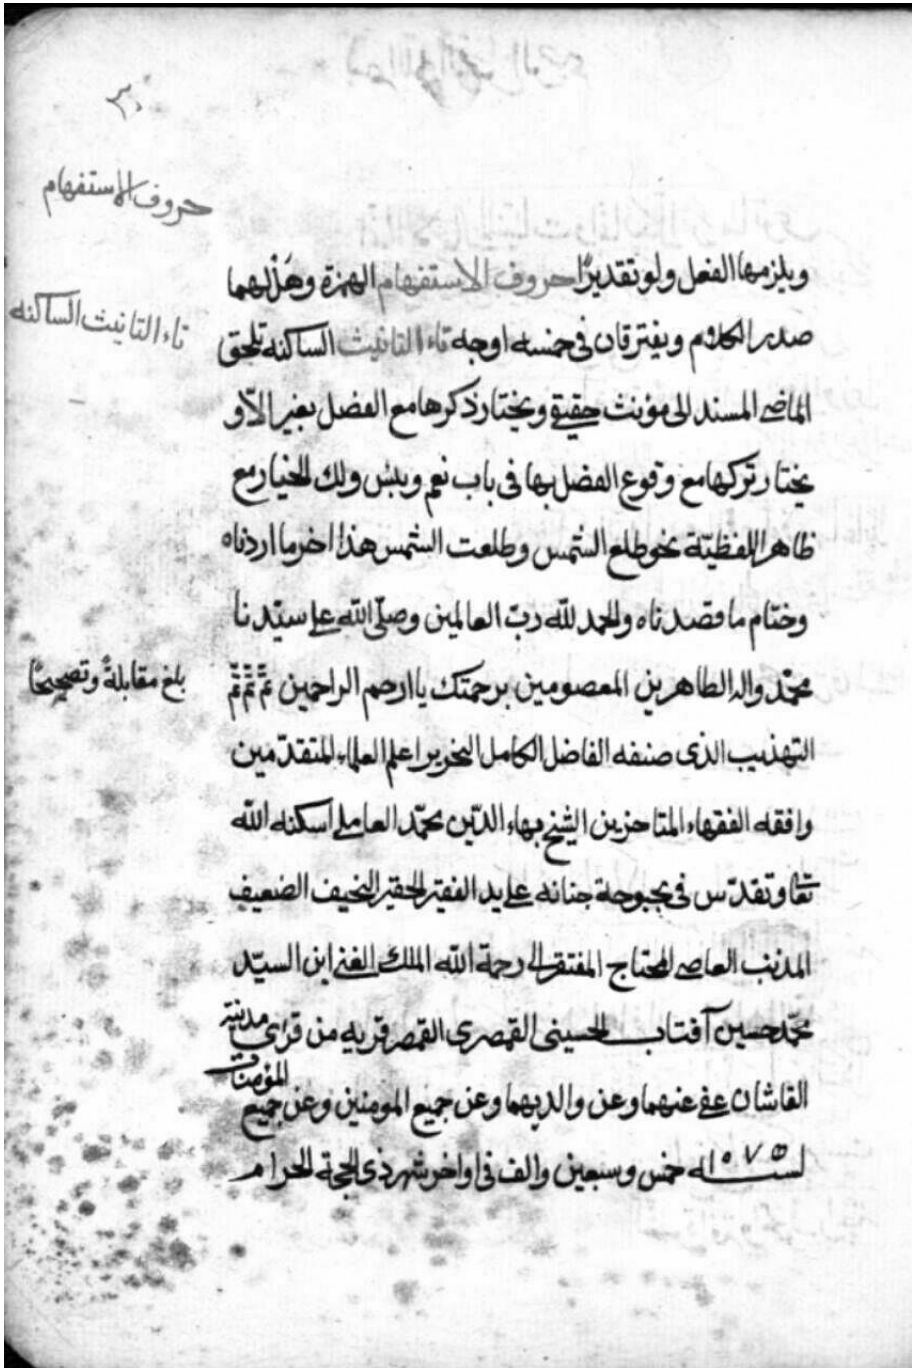 ٣٠
حروف الاستفهام
ويلزمها الفعل ولو تقديرًا حروف الاستفهام الهمزة وهَلْ لهما
تاء التانيث الساكنه
صدر الكلام ويفترقان فى خمسه اوجه تاء التانيث الساكنه تلحق
الماضے المسند الى مؤنث حقيقے ويختار ذكرها مع الفصل بغير الاّ و
يختار تركها مع وقوع الفصل بها فى باب نعم وبئس ولك الخيار مع
ظاهر اللفظيّة نحو طلع الشمس وطلعت الشمس هذا اخر ما اردناه
وختام ما قصدناه والحمد للّه ربّ العالمين وصلّى اللّه علے سيّدنا
محمّد واله الطاهرين المعصومين برحمتك يا ارحم الراحمين تمّ تمّ تمّ
بلغ مقابلةً وتصحيحًا
التهذيب الذى صنفه الفاضل الكامل النحرير اعلم العلماء المتقدّمين
وافقه الفقهاء المتاخرين الشيخ بهاء الدّين محمّد العاملے اسكنه اللّه
تعا وتقدّس فى بحبوحة جنانه علے يد الفقير الحقير النحيف الضعيف
المذنب العاصے المحتاج المفتقر الى رحمة اللّه الملك الغنے ابن السيّد
محمّد حسين آفتاب الحسينى القمصرى القمصر قريه من قراى مدينة
القاشان عفے عنهما وعن والديهما وعن جميع المومنين وعن جميع المؤمنات
لسنه ١٠٧٥ خمس وسبعين والف فى اواخر شهر ذى الحجة الحرام